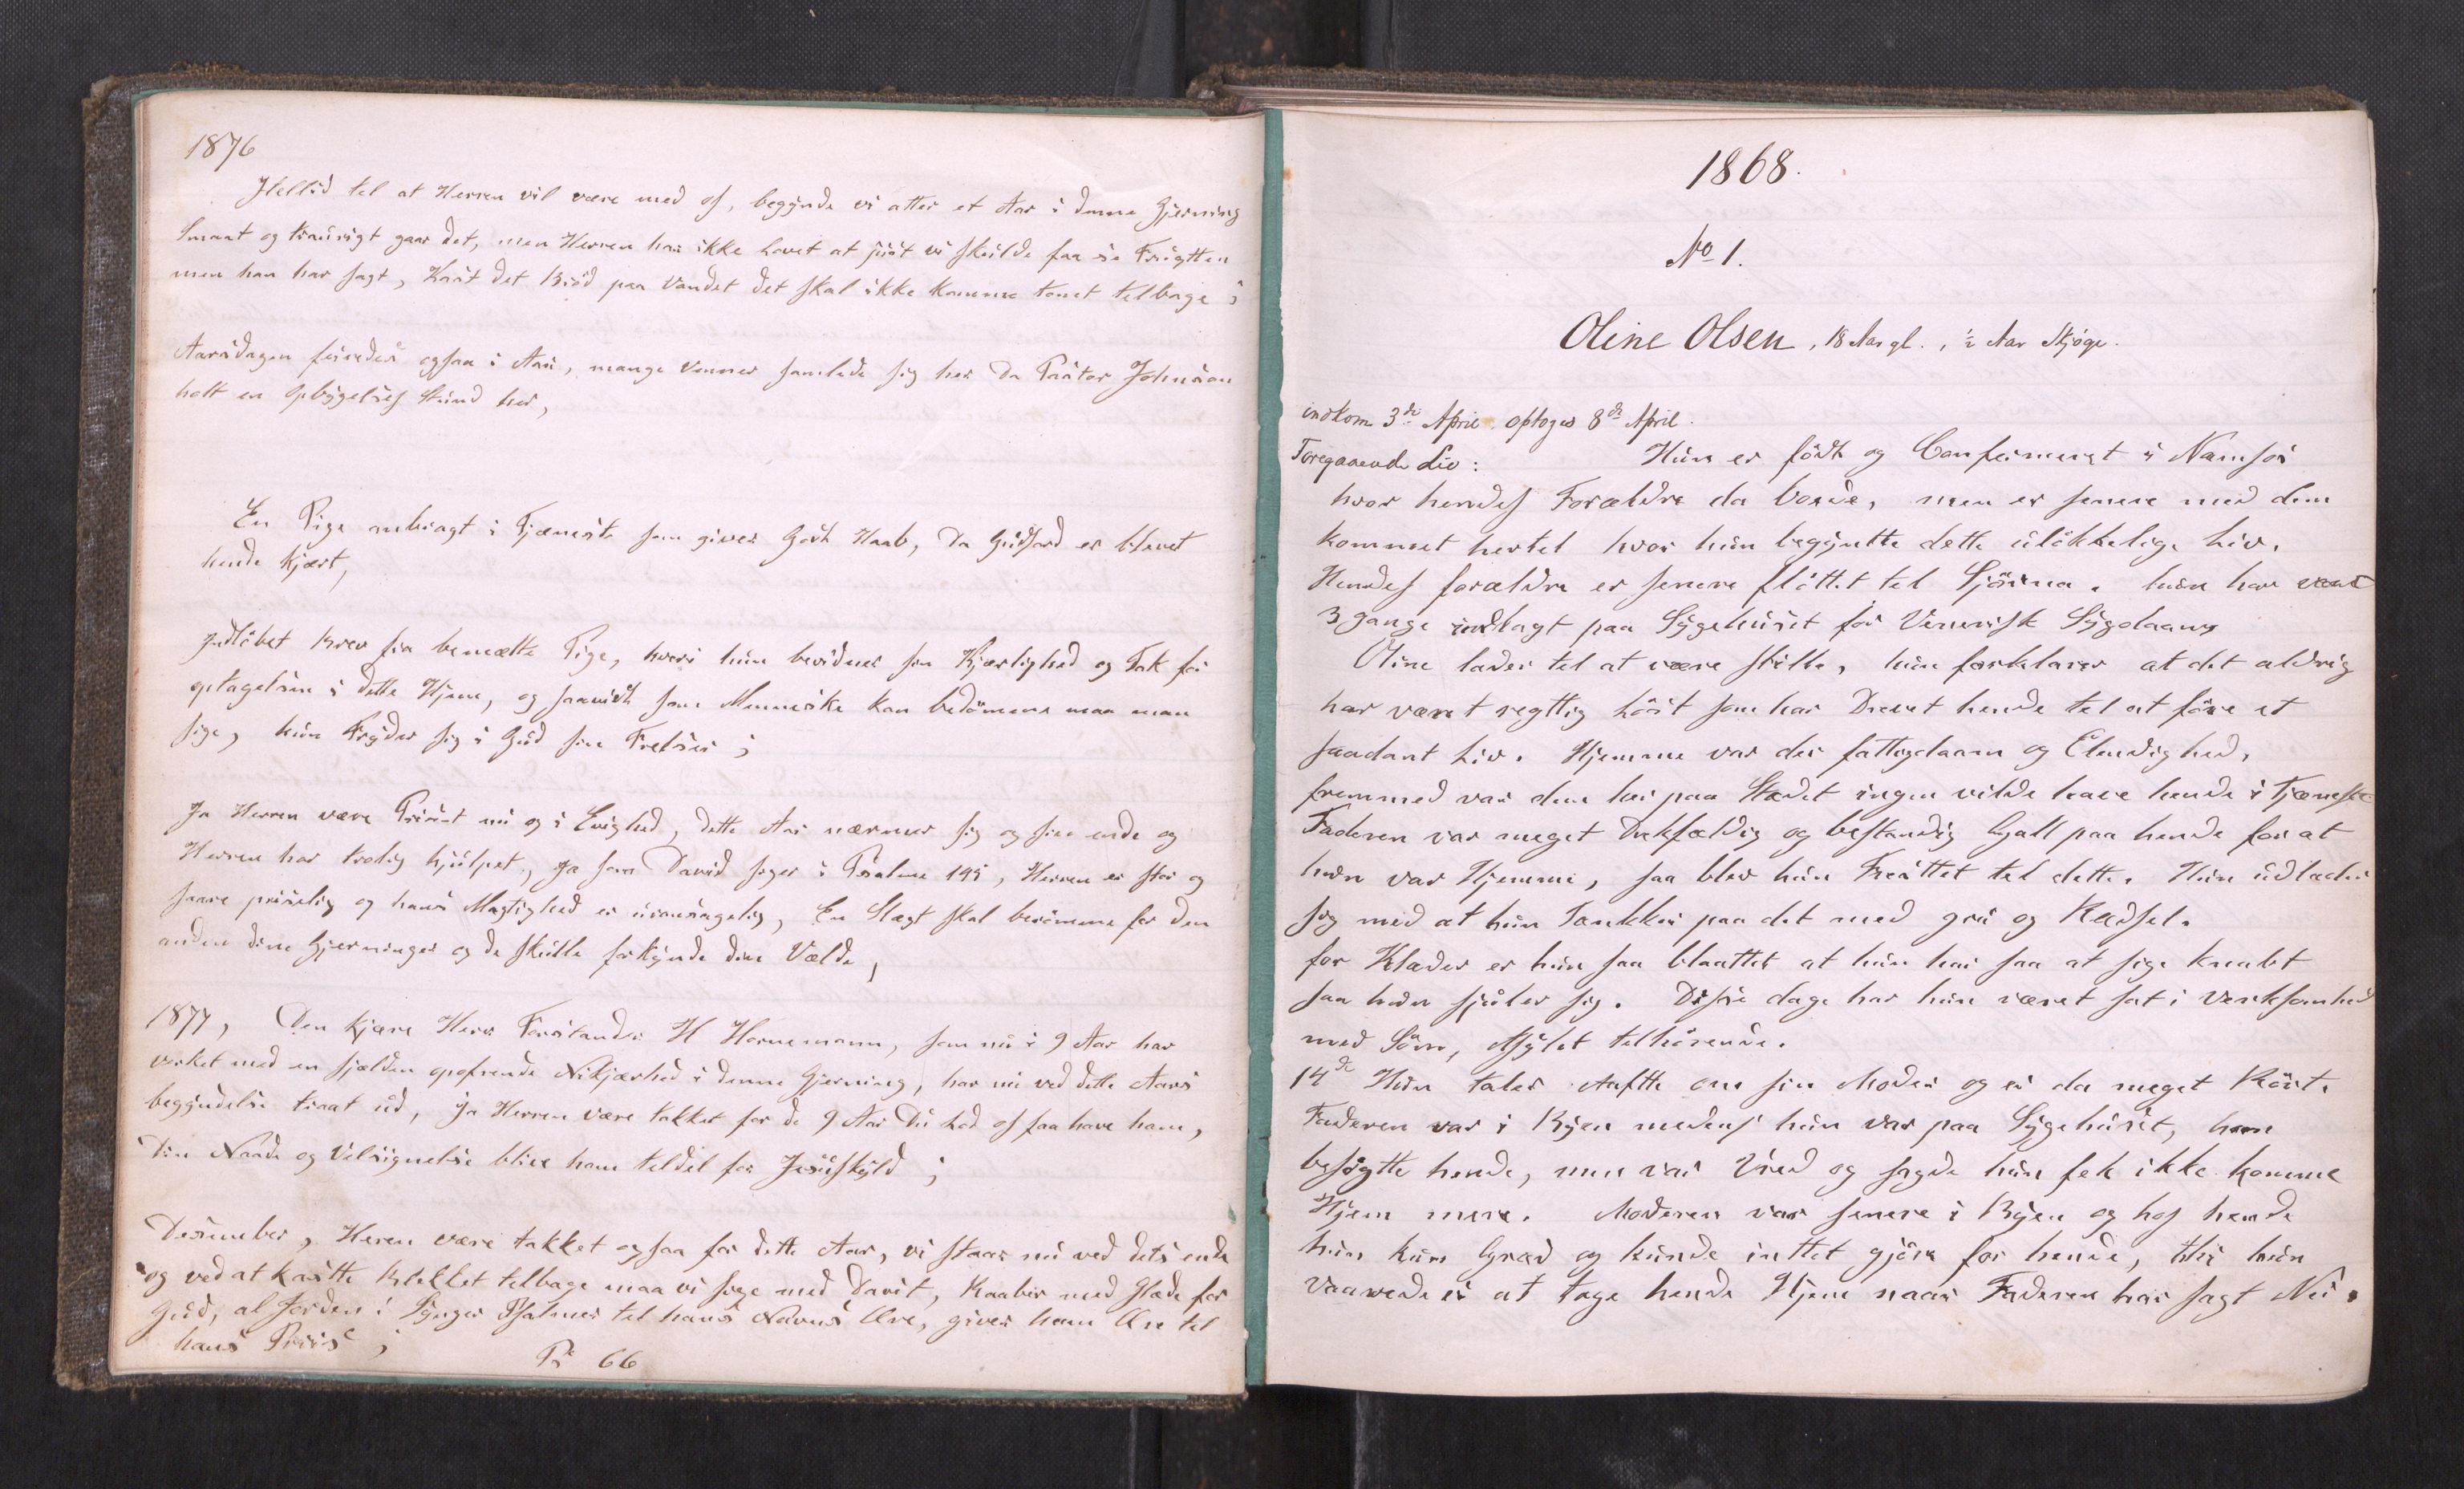 1876
Itellid til at Herren vil være med os, begynde vi atter et Aar i denne Gjerning
Smaat og traurigt gaar det, men Herren har ikke lovet at just vi skulde faa se Frugtten
men han har sagt, Kast det Brød paa Vandet det skal ikke komme tomt telbage ;
Aarsdagen feiredes ogsaa i Aar, mange Venner samlede sig her Da Pastor Johnson
holt en Opbygelses stund her,
En Pige anbragt i Tjæneste som giver Godt Haab, Da Gudsord er blevet
hende kjært,
Indløbet Brev fra bemælte Pige, hvori hun bevidner sin Kjærlighed og Tak for
optagelsen i dette Hjem, og saavidt som Menneske kan bedømme maa man
sige, hun Fryder sig i Gud sin Frelser ;
Ja Herren være Priset nu og i Evighed, dette Aar nærmer sig og sin ende og
Herren har trolig hjulpet, Ja som David siger i Psalme 145, Herren er stor og
saare priselig og hans Magtighed er uransagelig, En Slægt skal berømme for den
anden dine Gjerninger og de skulle forkynde din Vælde,
1877, Den kjære Herr Forstander H Hornemann, som nu i 9 Aar har
virket med en sjælden opofrende Nikjærhed i denne Gjerning, har nu ved dette Aars
begyndelse traat ud, Ja Herren være takket for de 9 Aar Du lod os faa have ham,
Din Naade og Velsignelse blive ham teldel for Jesuskyld ;
Desember, Heren være takket ogsaa for dette Aar, vi staar nu ved dets ende
og ved at kaste Blekket telbage maa vi sige med Davit, Raaber med Glæde for
Gud, al Jorden! Synger Psalmer tel hans Navns Ære, giver ham Ære tel
hans Priis ;
Ps 66
1868.
No 1.
Oline Olsen, 18 Aar gl., ½ Aar Skjøge.
indkom 3de April. optoges 8de April.
Foregaaende Liv: Hun er født og Confirmeret i Namsos
hvor hendes Forældre da boede, men er senere med dem
kommet hertel hvor hun begyntte dette uløkkelige Liv.
Hendes forældre er senere fløttet tel Sjørna. hun har vært
3 gange indlagt paa Sygehuset for Venerisk Sygdaam
Oline lader tel at være stille, hun forklarer at det aldrig
har været regttig løst som har Drevet hende tel at føre et
saadant Liv. Hjemme var der fattigdaam og Elendighed,
fremmed var den her paa Stædet ingen vilde have hende i Tjæneste
Faderen var meget Drikfældig og bestandig Gall paa hende for at
hun var Hjemme, saa blev hun Fristtet tel dette. Hun udlader
sig med at hun Tænkker paa det med gru og Rædsel.
for Klæder er hun saa blaattet at hun har saa at sige knabt
saa hun sjuler sig. Disse dage har hun været sat i Verksomhed
med Søm, Asylet telhørende.
14de Hun taler Aaftte om sin Moder og er da meget Rørt.
Faderen var i Byen medens hun var paa Sygehuset, han
besøgtte hende, men var Vred og sagde hun fek ikke komme
Hjem mere. Moderen var senere i Byen og hos hende
hun kun Græd og kunde inttet gjøre for hende, thi hun
vaavede ei at tage hende Hjem naar Faderen har sagt Nei.